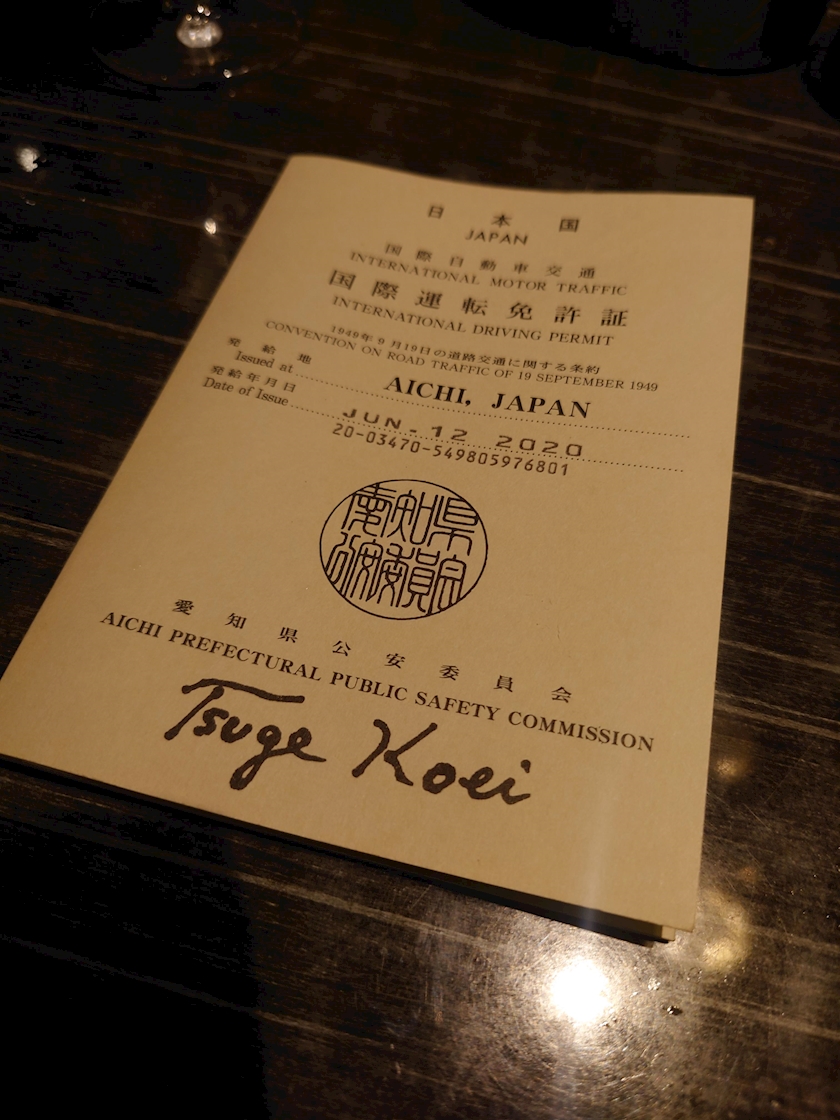 日本国
JAPAN
国際自動車交通
INTERNATIONAL MOTOR TRAFFIC
国際運転免許証
INTERNATIONAL DRIVING PERMIT
1949年9月19日の道路交通に関する条約
CONVENTION ON ROAD TRAFFIC OF 19 SEPTEMBER 1949
発給地
Issued at AICHI, JAPAN
発給年月日
Date of Issue JUN-12 2020
20-03470-549805976801
愛知県公安委員会
愛知県公安委員会
AICHI PREFECTURAL PUBLIC SAFETY COMMISSION
Tsuge Koei